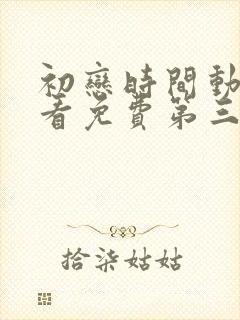 初戀時間動
看免費第三
拾柒姑姑